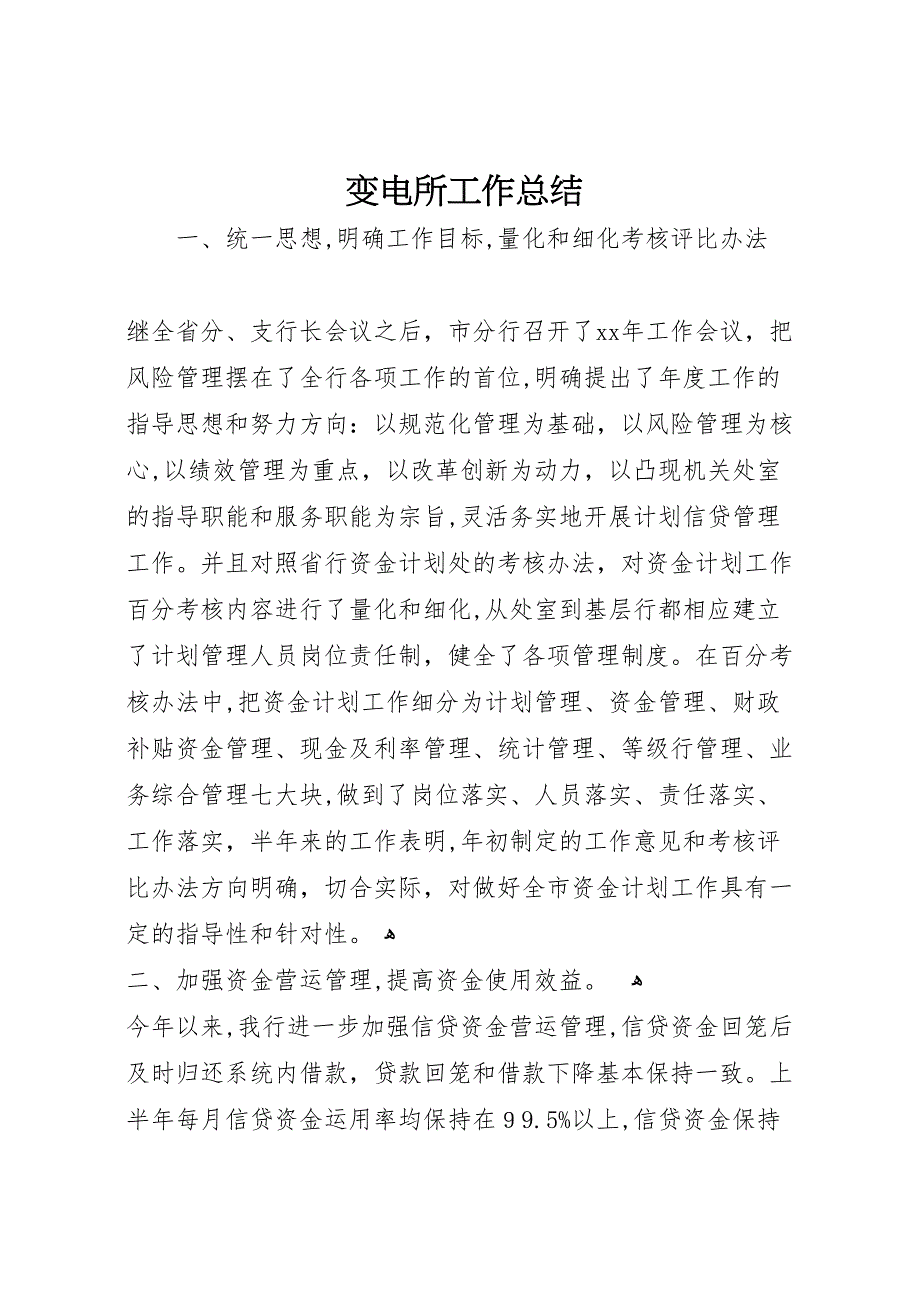 变电所工作总结
一、统一思想,明确工作目标,量化和细化考核评比办法
继全省分、支行长会议之后，市分行召开了xx年工作会议，把
风险管理摆在了全行各项工作的首位,明确提出了年度工作的
指导思想和努力方向：以规范化管理为基础，以风险管理为核
心,以绩效管理为重点，以改革创新为动力，以凸现机关处室
的指导职能和服务职能为宗旨,灵活务实地开展计划信贷管理
工作。并且对照省行资金计划处的考核办法，对资金计划工作
百分考核内容进行了量化和细化,从处室到基层行都相应建立
了计划管理人员岗位责任制，健全了各项管理制度。在百分考
核办法中,把资金计划工作细分为计划管理、资金管理、财政
补贴资金管理、现金及利率管理、统计管理、等级行管理、业
务综合管理七大块,做到了岗位落实、人员落实、责任落实、
工作落实，半年来的工作表明,年初制定的工作意见和考核评
比办法方向明确，切合实际，对做好全市资金计划工作具有一
定的指导性和针对性。 ﻫ
二、加强资金营运管理,提高资金使用效益。 ﻫ
今年以来,我行进一步加强信贷资金营运管理,信贷资金回笼后
及时归还系统内借款，贷款回笼和借款下降基本保持一致。上
半年每月信贷资金运用率均保持在９９.5%以上,信贷资金保持